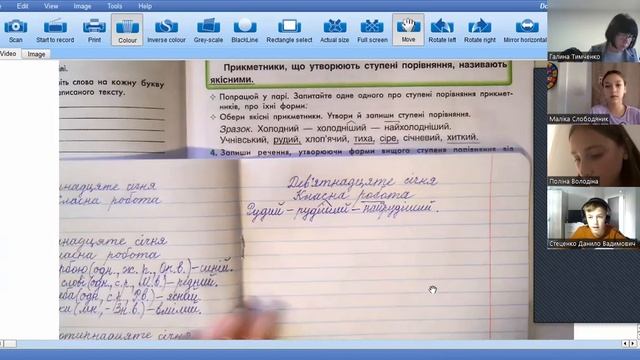 Scan
Start to record
Print
Colour
Inverse colour
Grey-scale
BlackLine
Rectangle select
Actual size
Full screen
Move
Rotate left
Rotate right
Mirror horizontal
Video
Image
Прикметники, що утворюють ступені порівняння, називають
якісними.
Попрацюй у парі. Запитайте одне одного про ступені порівняння прикмет-
ників, про їхні форми.
Обери якісні прикметники. Утвори й запиши ступені порівняння.
Зразок. Холодний — холодніший — найхолодніший.
Учнівський, рудий, хлоп'ячий, тиха, сіре, січневий, хиткий.
4. Запиши речення, утворюючи форми вищого ступеня порівняння від
слово на кожну букву
писаного тексту.
Дев'ятнадцяте січня
Класна робота
Рудий – рудіший – найрудіший.
надцяте січня
робота
надцяте січня
робота
(одн., ж. р., Ор. в.) – синій.
(одн., с. р., М. в.) – рідний.
(одн., с. р., Р. в.) – ясний.
(мн., – Зн. в.) –
січня
Галина Тимченко
Маліка Слободяник
Поліна Володіна
Стеценко Данило Вадимович